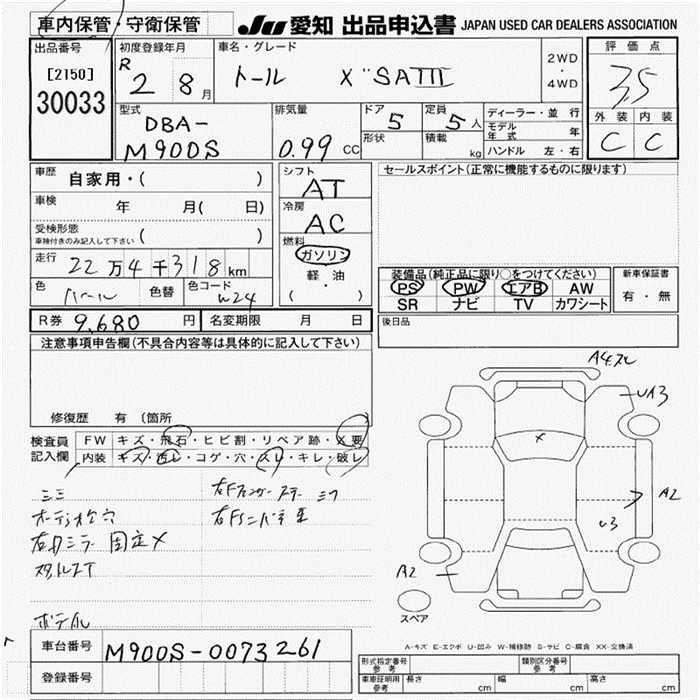 車内保管・守衛保管
JU 愛知 出品申込書 JAPAN USED CAR DEALERS ASSOCIATION
出品番号
[2150]
30033
初度登録年月
R 2 8月
車名・グレード
トール X "SAIII
2WD
・
4WD
評価点
3.5
外装 内装
C C
型式
DBA-
M900S
排気量
0.99 CC
ドア 5
形状
定員 5人
積載 kg
ディーラー・並行
モデル年式 年
ハンドル 左・右
車歴 自家用・( )
車検 年 月( 日)
受検形態
車検付きのみ記入して下さい ( )
走行 22万4千318km
色 パール 色替
色コード W24
シフト
AT
冷房
AC
燃料
ガソリン
軽・油
( )
セールスポイント(正常に機能するものに限ります)
装備品(純正品に限り○をつけてください)
PS PW エアB AW
SR ナビ TV カワシート
新車保証書
有・無
後日品
R券 9,680円
名変期限 月 日
注意事項申告欄(不具合内容等は具体的に記入して下さい)
修復歴 有 (箇所 )
検査員記入欄
FW キズ・飛石・ヒビ割・リペア跡・X要
内装 キズ・汚レ・コゲ・穴・スレ・キレ・破レ
ミミ
オーディオ公穴
右ドミラー固定X
ボデイル
A4
UA3
X
A2
U3
A2
スペア
A-キズ E-エクボ U-凹み W-補修跡 S-サビ C-腐食 XX-交換済
車台番号 M900S-0073261
登録番号
形式指定番号
参考
類別区分番号
参考
車庫証明用
参考
長さ cm
幅 cm
高さ cm